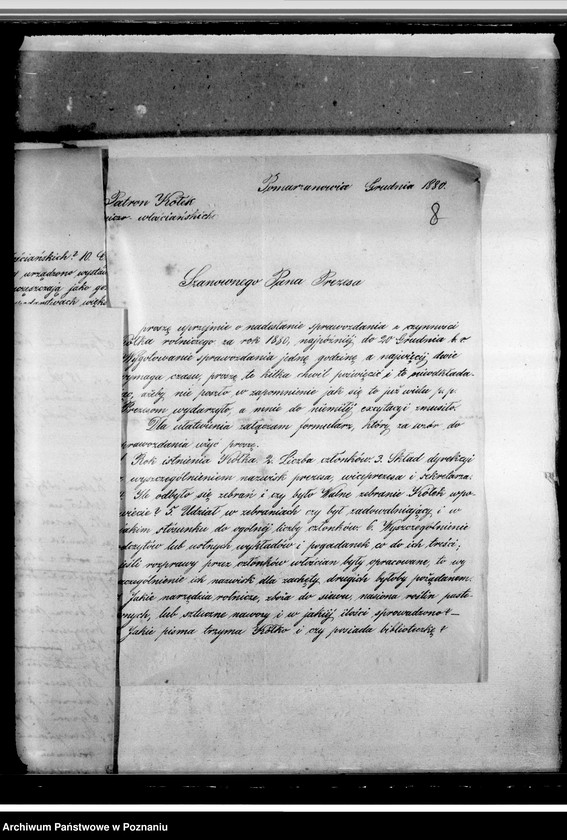 Pomarzanowice Grudnia 1880.
8
Patron Kółek
włościańskich
Szanownego Pana Prezesa
proszę uprzejmie o nadesłanie sprawozdania z czynności
Kółka rolniczego za rok 1880, najpóźniej do 20 Grudnia b. r
Wygotowanie sprawozdania jednę godzinę a najwięcej dwie
wymaga czasu, proszę te kilka chwil poświęcić i te nieodkłada
żeby nie poszło w zapomnienie jak się to już wielu p.p.
Prezesom wydarzyło, a mnie do niemiłej excytacyi zmusiło.
Dla ułatwienia załączam formularz, który za wzór do
sprawozdania wziąć proszę.
Rok istnienia Kółka 2. Liczba członków. 3. Skład dyrekcyi
z wyszczególnieniem nazwisk prezesa, wiceprezesa i sekretarza.
Ile odbyło się zebrań i czy było Walne zebranie Kółek w po-
wiecie? 5 Udział w zebraniach czy był zadowalniający, i w
jakim stosunku do ogólnej liczby członków. 6. Wyszczególnienie
odczytów lub wolnych wykładów i pogadanek co do ich treści;
jeśli rozprawy przez członków włościan były opracowane, to wy
szczególnienie ich nazwisk dla zachęty, drugich byłoby pożądanem.
Jakie narzędzia rolnicze, zboża do siewu, nasiona roślin paste
wnych, lub sztuczne nawozy i w jakiej ilości sprowadzono? –
Jakie pisma trzyma Kółko i czy posiada biblioteczkę?
włościańskich? 10. C
urządzono wystaw
jako go
Archiwum Państwowe w Poznaniu